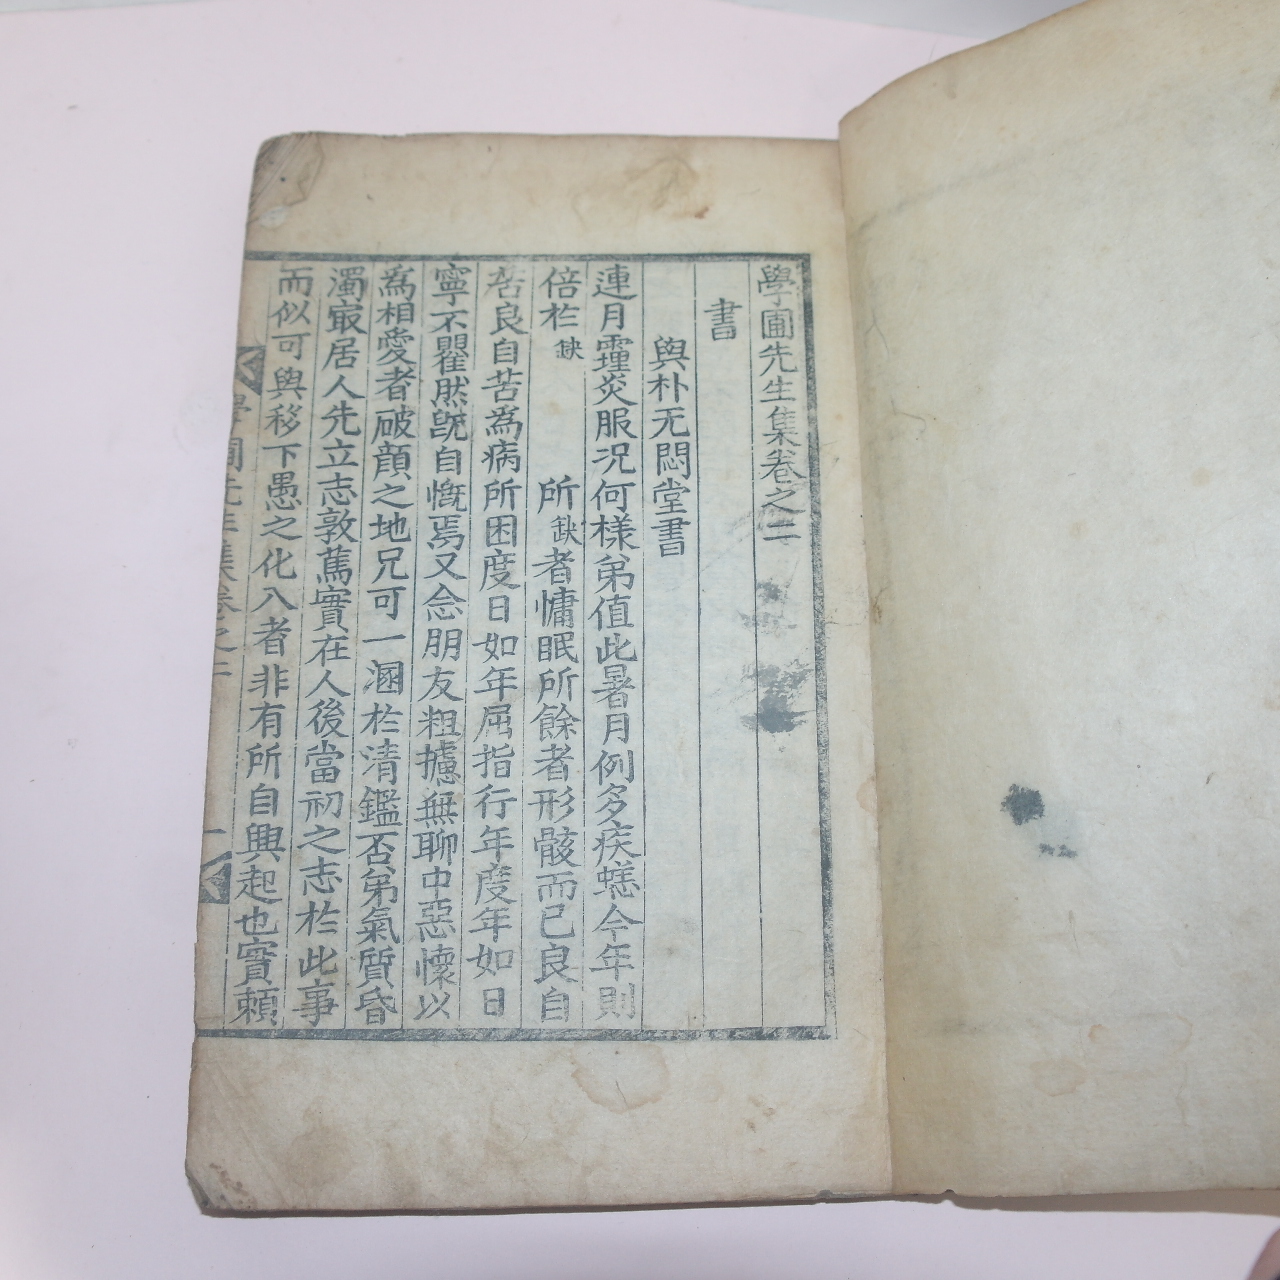 學圃先生集卷之二
書
與朴无悶堂書
連月霾炎服况何樣弟值此暑月例多疾蟋今年則
倍於缺 所缺者慵眠所餘者形骸而已良自
苦良自苦爲病所困度日如年屈指行年度年如日
寧不瞿然旣自慨焉又念朋友粗攄無聊中惡懷以
爲相愛者破顔之地兄可一溷於清鑑否弟氣質昏
濁㝡居人先立志敦篤實在人後當初之志於此事
而似可與移下愚之化入者非有所自興起也實賴
學圃先生集卷之二 一